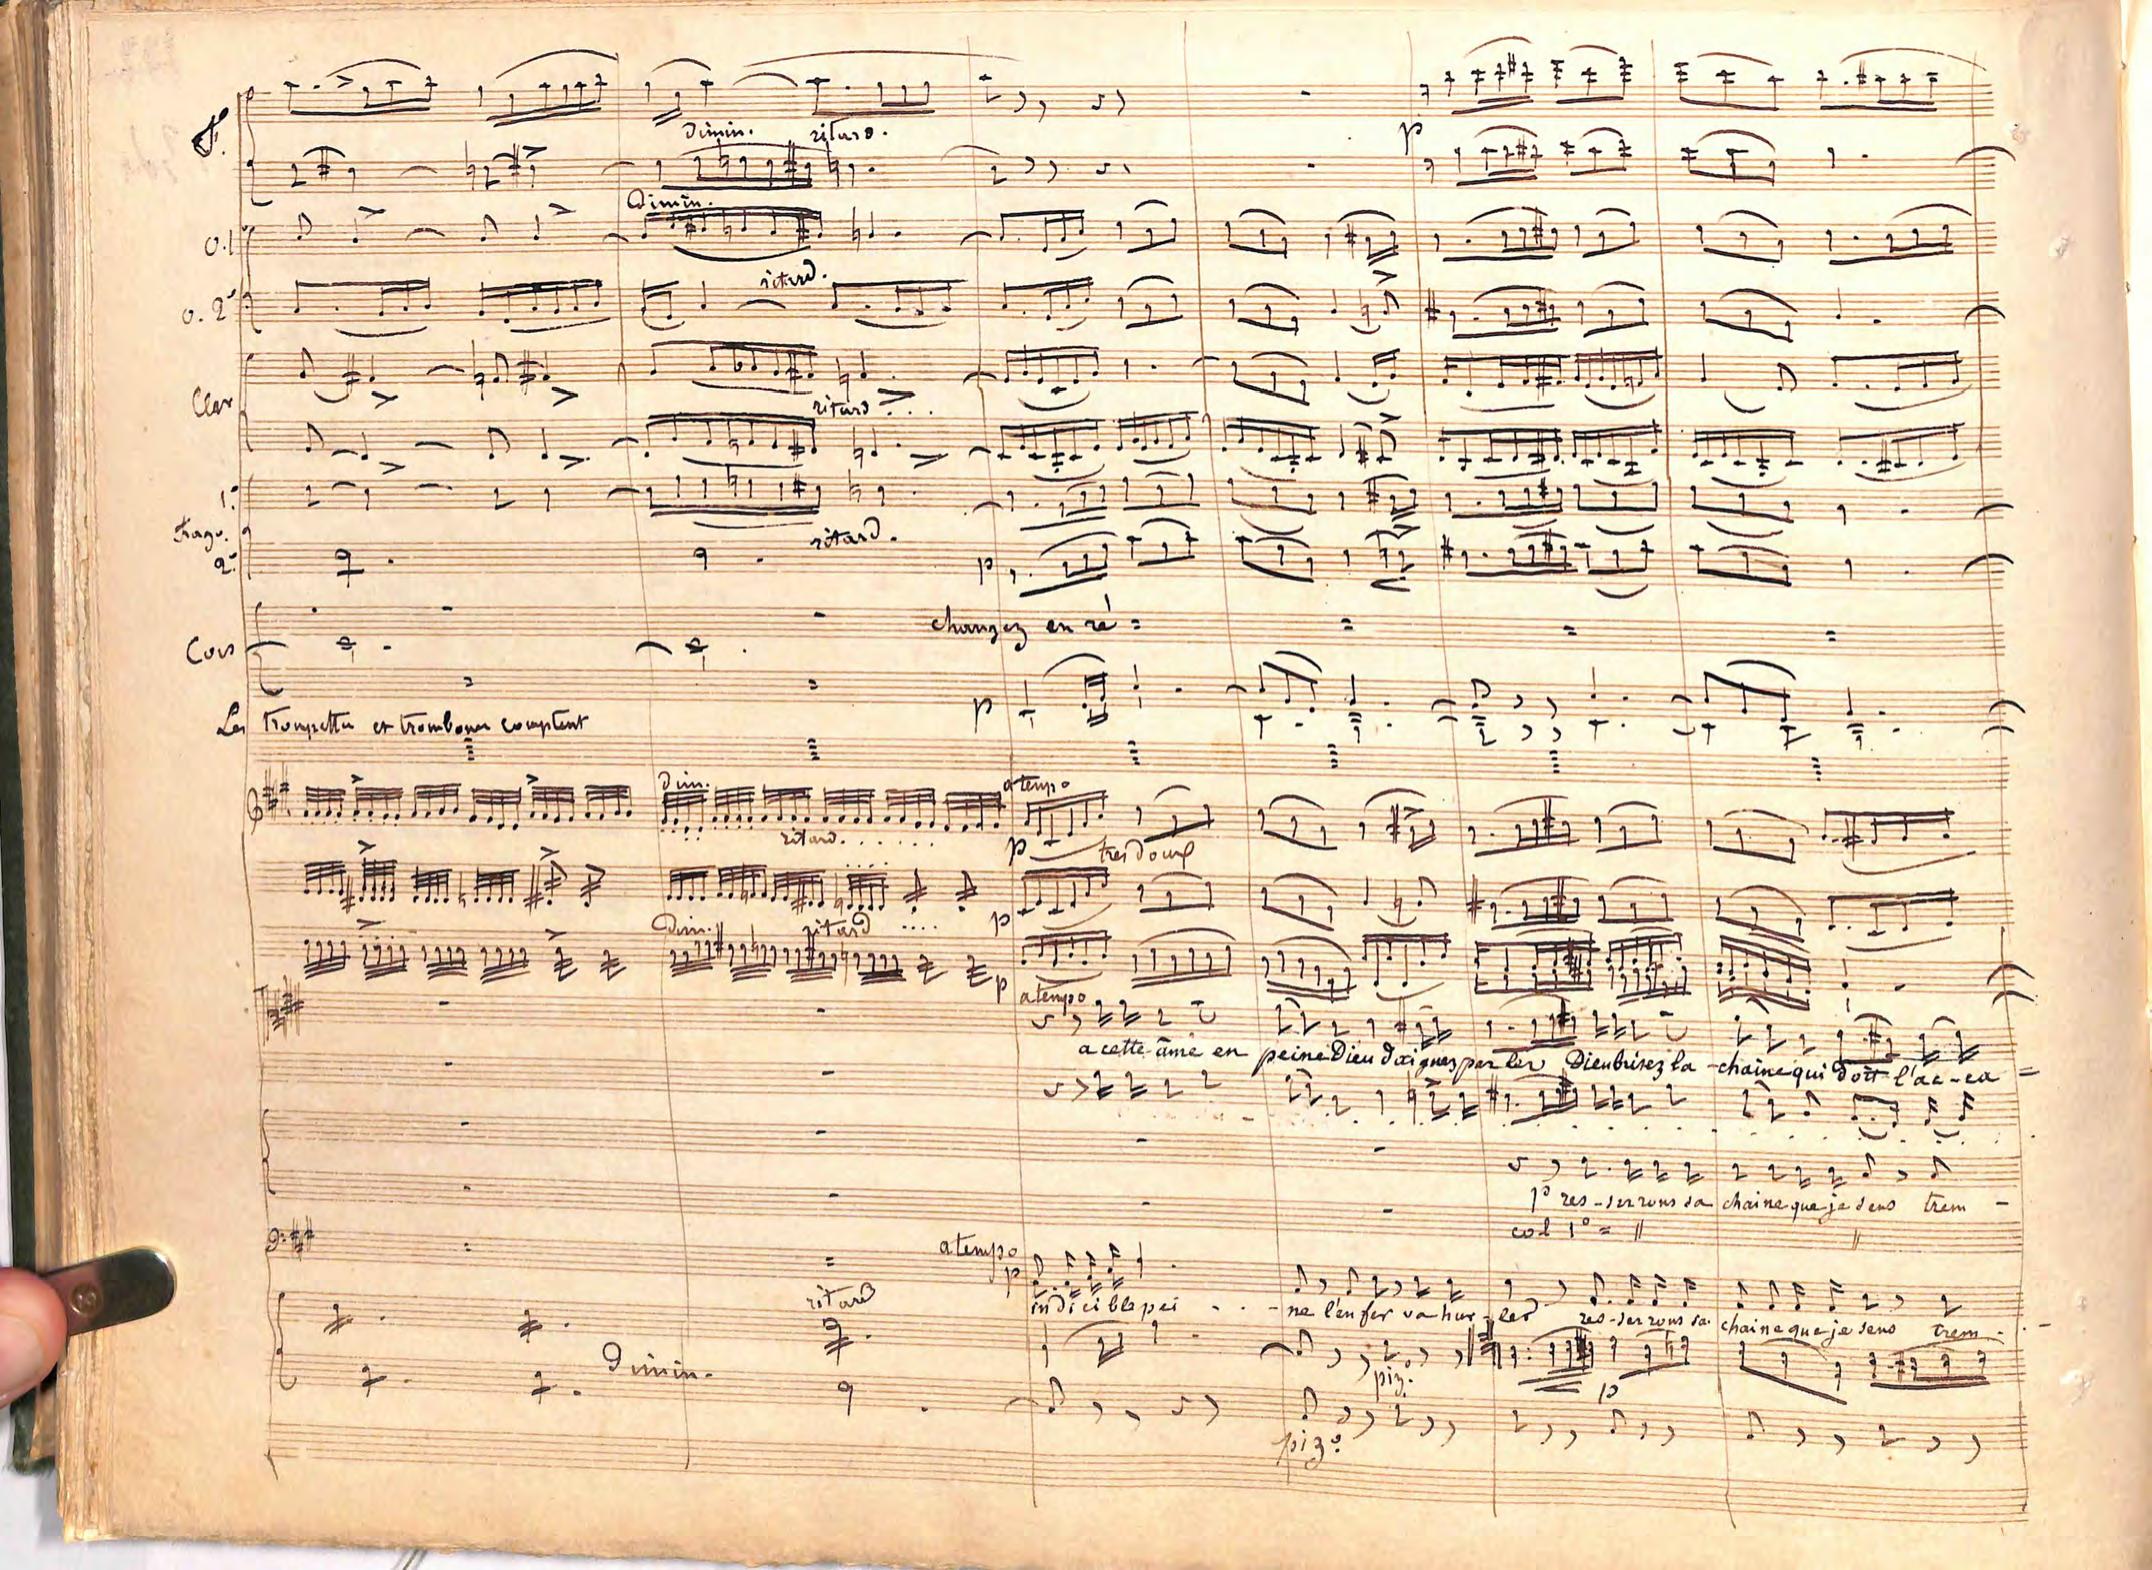 F.
dimin. ritard.
Dimin.
O. 1
ritard.
O. 2e
Clar
ritard...
1º
Fago.
2º
ritard.
p
changez en ré =
Cors
p
Les trompettes et trombones comptent
dim.
a tempo
ritard.......
p
tres doux
p
Dim. ritard ....
p
a tempo
a cette âme en peine Dieu daignez parler Dieu brisez la chaine qui doit l'ac-ca =
p res-serrons sa chaine que je sens trem -
col 1º = //
//
a tempo
p
ritard
indicible pei . . - ne l'enfer va hur-ler res-serrons sa chaine que je sens trem -
Dimin.
piz.
p
pizº